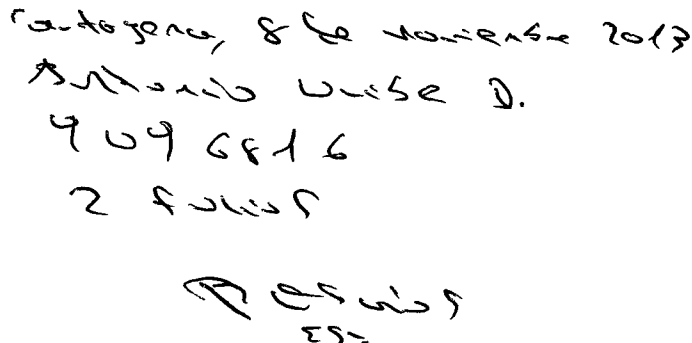 Cartagena, 8 de noviembre 2013
Antonio Uribe D.
9096816
2 folios